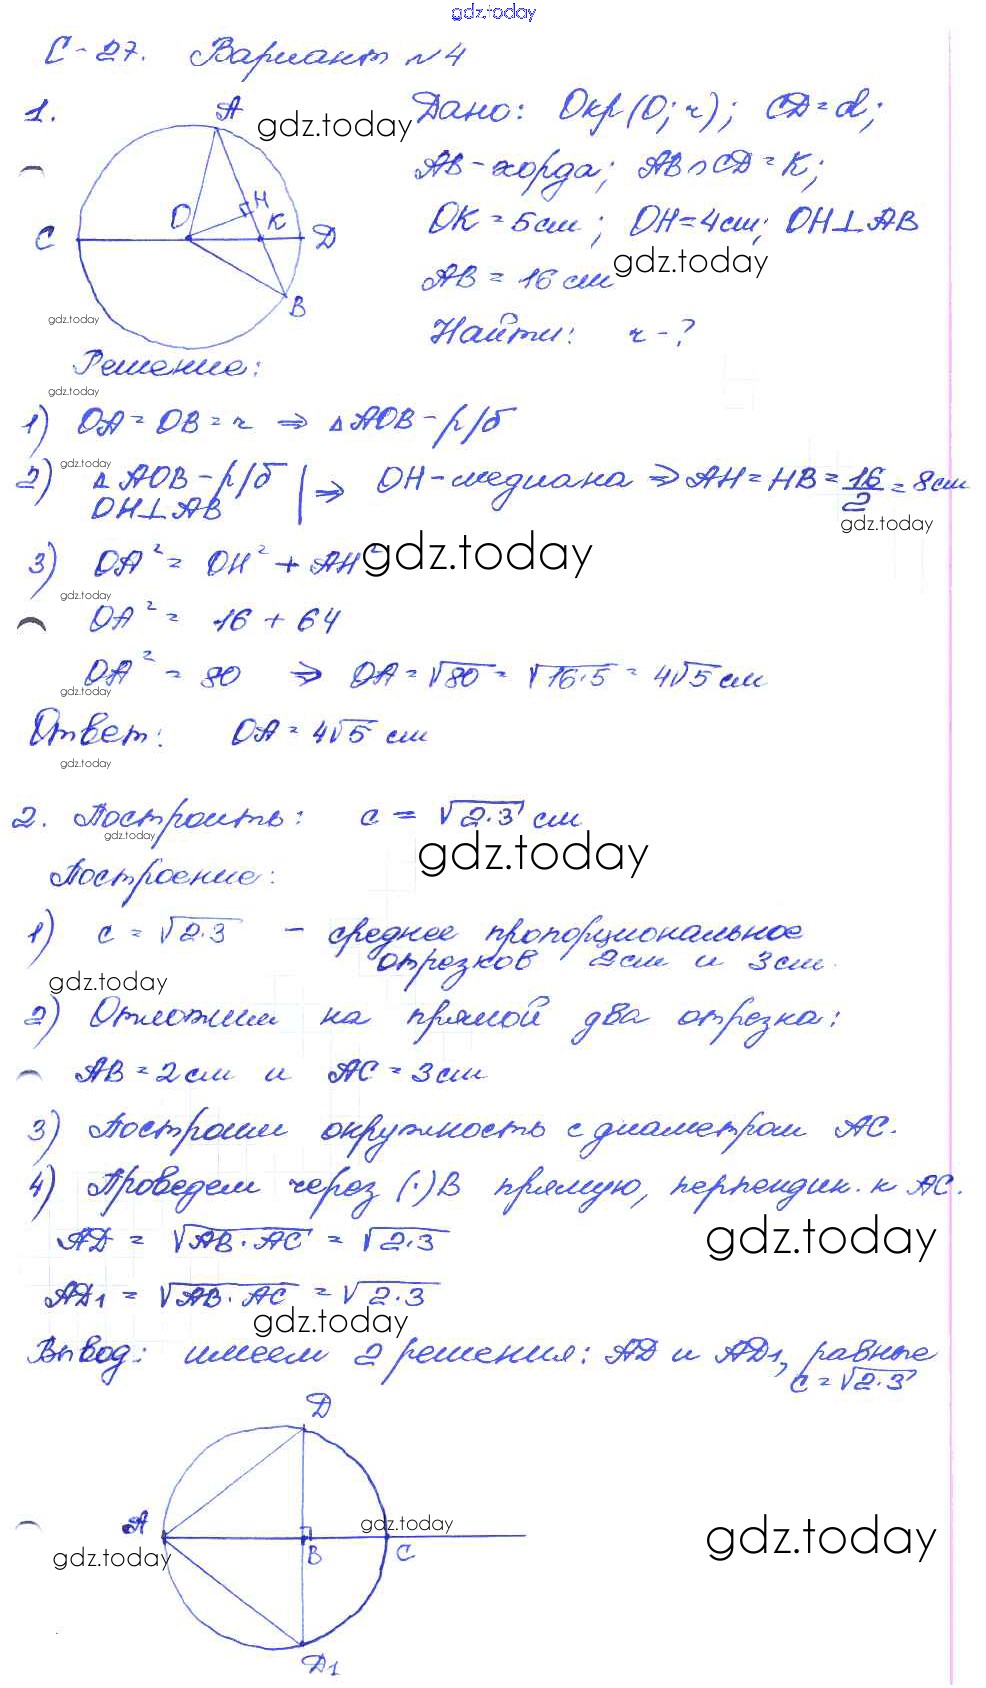 gdz.today
С-27. Вариант №4
1.
A
gdz.today
Дано: Окр(О; r); CD = d;
AB-хорда; AB∩CD = K;
C O H K D
OK = 5см; OH = 4см; OH⊥AB
gdz.today
AB = 16 см
B
gdz.today
Найти: r - ?
Решение:
gdz.today
1) OA = OB = r ⇒ △AOB - р/б
gdz.today
2) △AOB - р/б | ⇒ OH - медиана ⇒ AH = HB = 16/2 = 8см
OH⊥AB
gdz.today
3) OA² = OH² + AH² gdz.today
gdz.today
OA² = 16 + 64
OA² = 80 ⇒ OA = √80 = √16·5 = 4√5 см
gdz.today
Ответ: OA = 4√5 см
gdz.today
2. Построить: c = √2·3 см
gdz.today
gdz.today
Построение:
1) c = √2·3 - среднее пропорциональное
отрезков 2см и 3см.
gdz.today
2) Отложим на прямой два отрезка:
AB = 2см и AC = 3см
3) Построим окружность с диаметром AC.
4) Проведем через (·)B прямую, перпендик. к AC.
AD = √AB·AC = √2·3
gdz.today
AD1 = √AB·AC = √2·3
gdz.today
Вывод: имеем 2 решения: AD и AD1, равные
c = √2·3
D
A
gdz.today
B C
gdz.today
gdz.today
D1